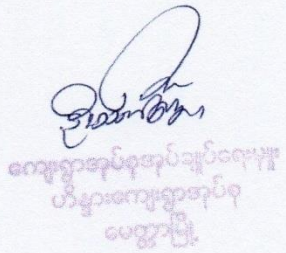 ကျေးရွာအုပ်စုအုပ်ချုပ်ရေးမှူး
ဟိန္ဒားကျေးရွာအုပ်စု
မေတ္တာမြို့